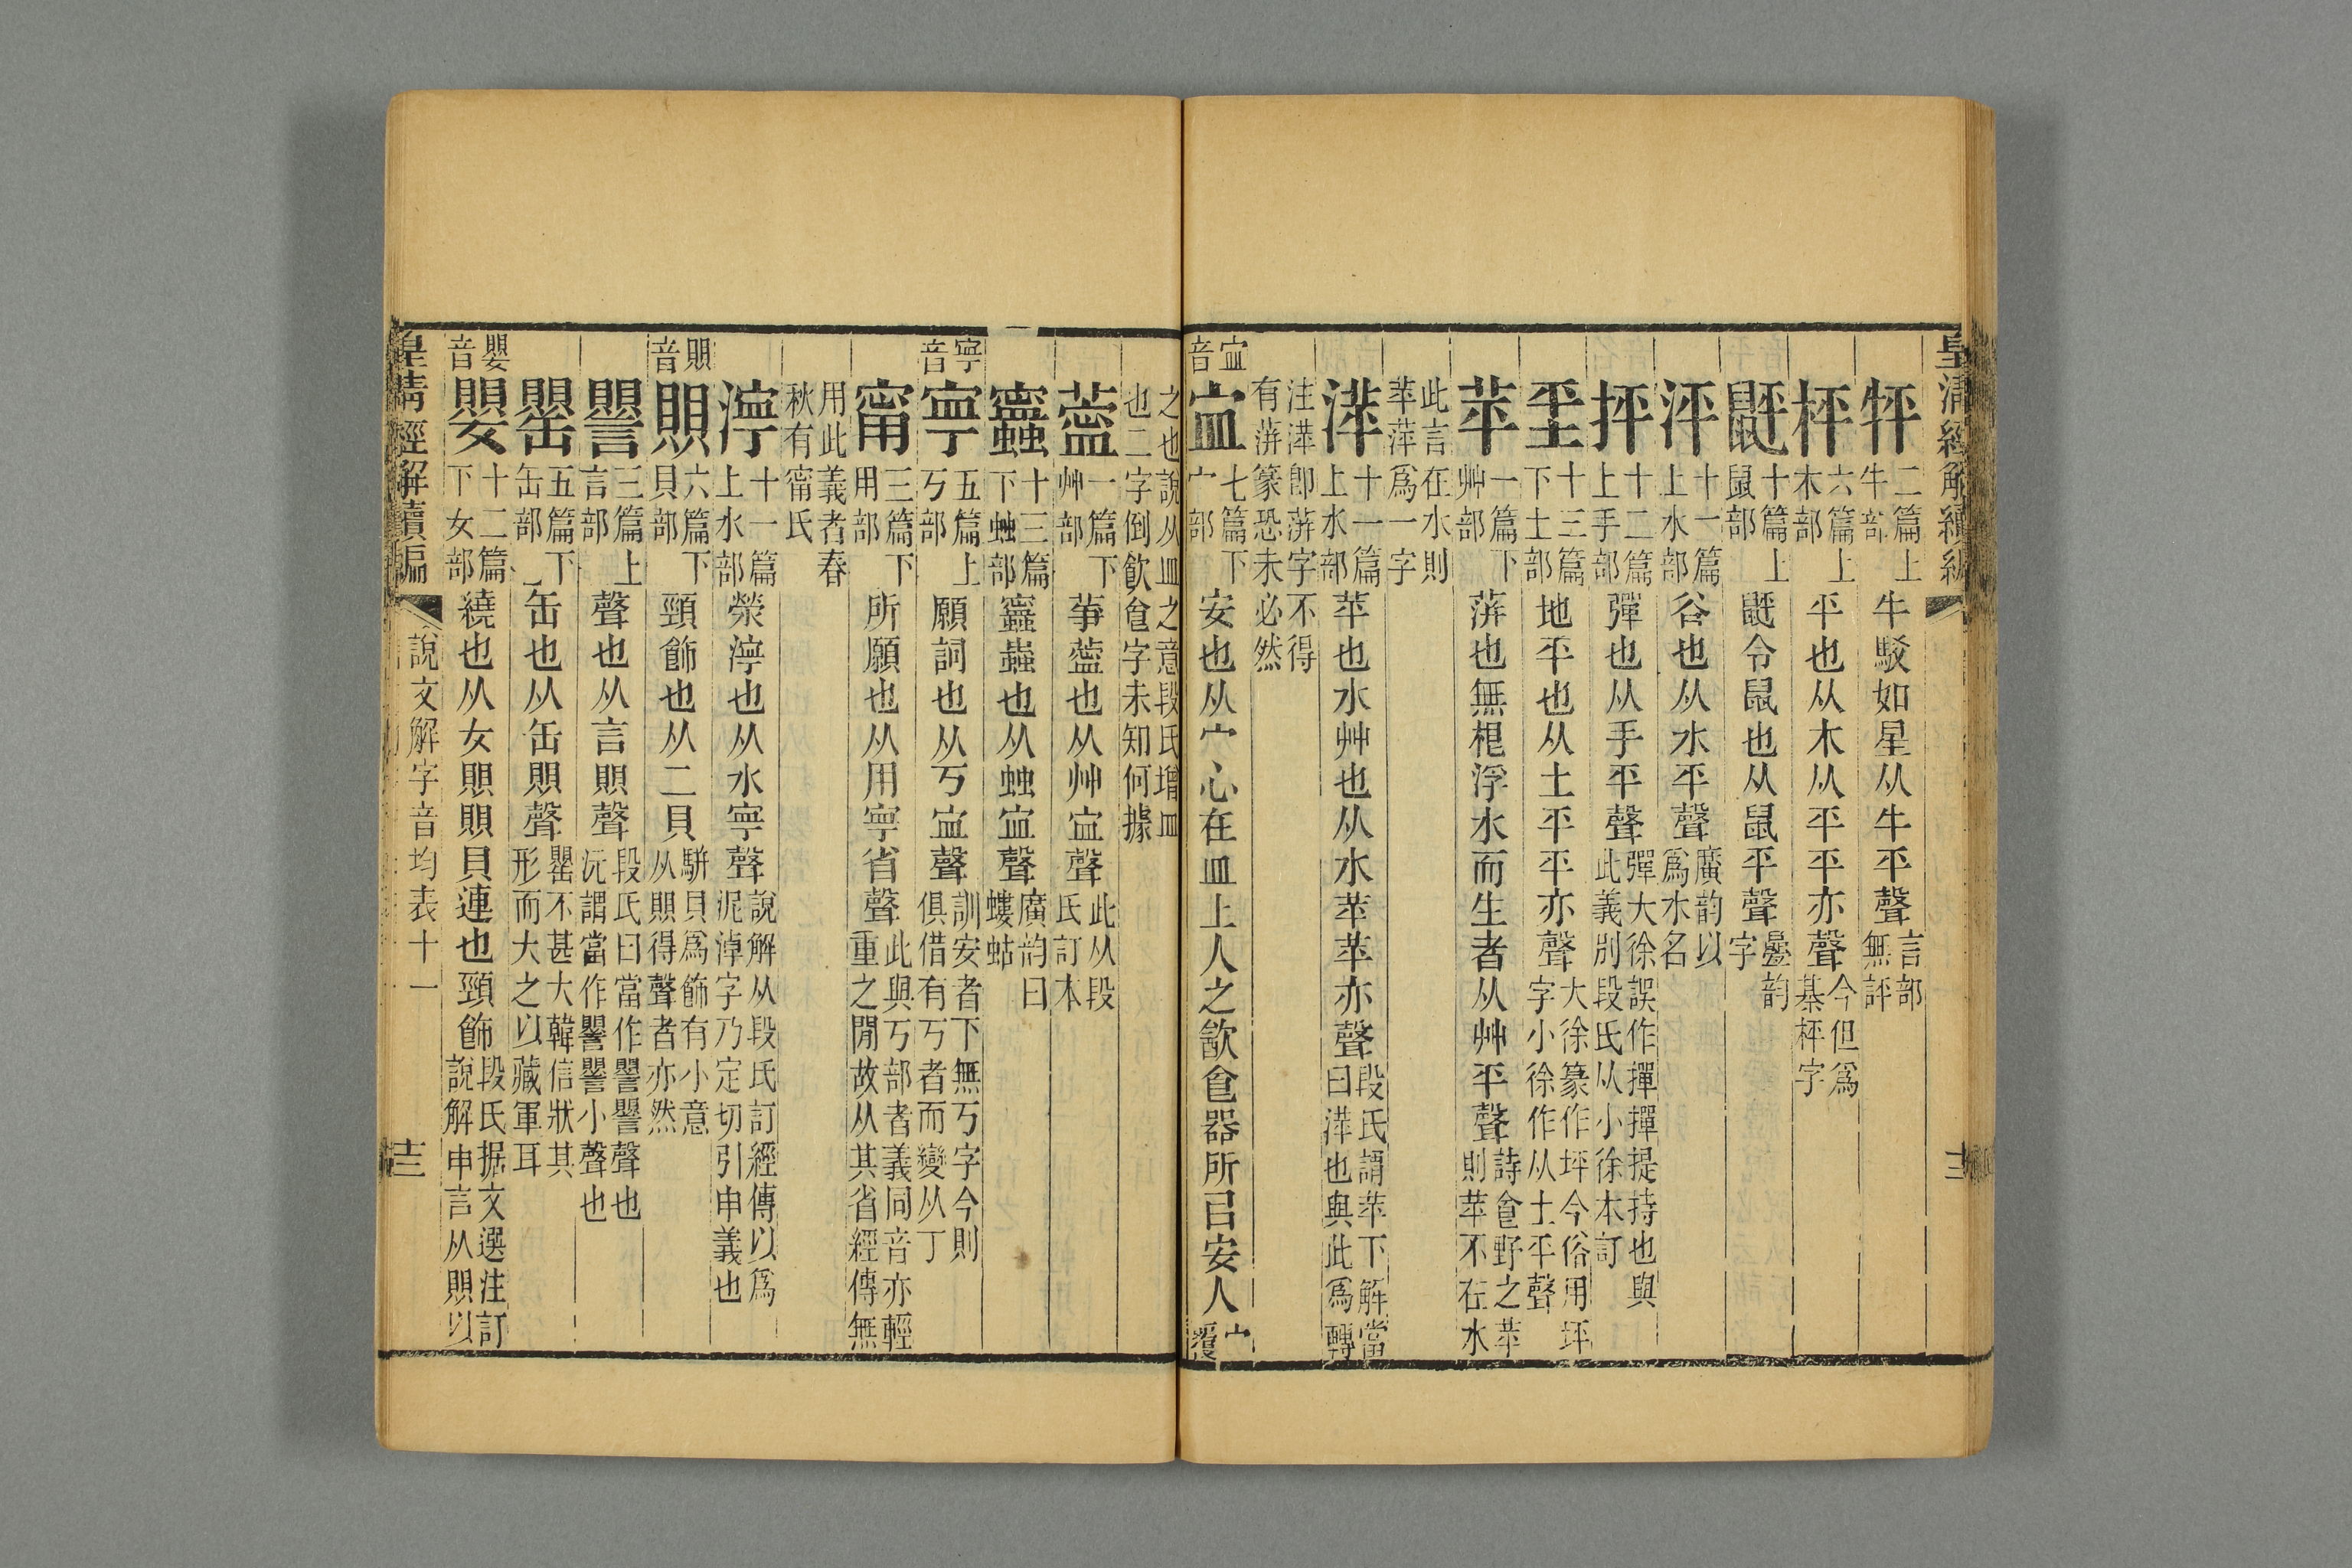 皇清經解續編
牪二篇上牛部牛駁如星从牛平聲言部無評
枰六篇上木部平也从木从平平亦聲今但爲棊枰字
鼮十篇上鼠部令鼠也从鼠平聲曡韵字
泙十一篇上水部谷也从水平聲廣韵以爲水名
抨十二篇上手部彈也从手平聲彈大徐誤作撣撣提持也與此義別段氏从小徐本訂
坙十三篇下土部地平也从土平平亦聲大徐篆作坪今俗用坪字小徐作从土平聲
苹一篇下艸部蓱也無根浮水而生者从艸平聲詩食野之苹則苹不在水
此言在水則苹萍爲一字
萍十一篇上水部苹也水艸也从水苹苹亦聲段氏謂苹下解當曰萍也與此爲轉
注萍卽蓱字不得有蓱篆恐未必然
寍音
寍七篇下宀部安也从宀心在皿上人之飮食器所㠯安人宀覆
之也說从皿之意段氏增皿也二字倒飮食字未知何據
薴一篇下艸部葶薴也从艸寍聲此从段氏訂本
蠠十三篇下䖵部蠠蟲也从䖵寍聲廣韵曰螻蛄
寧音
寧五篇上丂部願詞也从丂寍聲訓安者下無丂字今則俱借有丂者而變从丁
甯三篇下用部所願也从用寧省聲此與丂部者義同音亦輕重之閒故从其省經傳無
用此義者春秋有甯氏
濘十一篇上水部滎濘也从水寧聲說解从段氏訂經傳以爲泥淖字乃定切引申義也
賏音
賏六篇下貝部頸飾也从二貝駢貝爲飾有小意从賏得聲者亦然
譻三篇上言部聲也从言賏聲段氏曰當作譻譻聲也沅謂當作譻譻小聲也
罌五篇下缶部缶也从缶賏聲罌不甚大韓信狀其形而大之以藏軍耳
嬰音
嬰十二篇下女部繞也从女賏賏貝連也頸飾段氏据文選注訂說解申言从賏以
皇清經解續編
說文解字音均表十一
十三